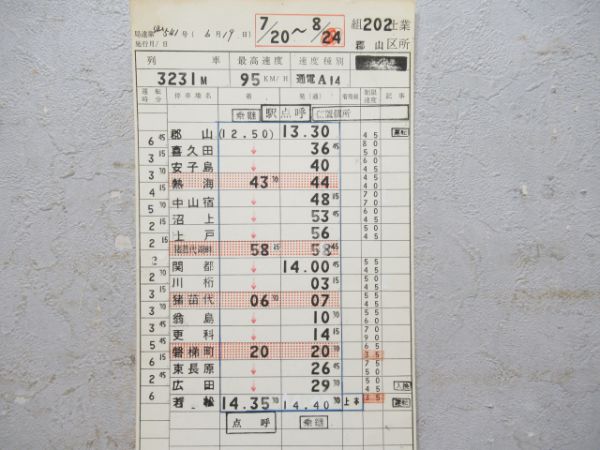 局達第 541 号 ( 6月19日) 7/20 ～ 8/24 組 202 仕業
発行月/日 郡山 区所
列 車 最高速度 速度種別
3231M 95 KM/H 通電A14
運転時分 停車場名 着 発(通) 着発線 制限速度 記事
乗継 駅点呼 仁置個所
郡山 (12.50) 13.30 45 運転
6 45 喜久田 ↓ 36 45 80 50
3 15 安子島 ↓ 40 60 45
3 15 熱海 43 30 44 40
4 15 中山宿 ↓ 48 15
5 30 沼上 ↓ 53 45 60 45
2 15 上戸 ↓ 56
2 15 猪苗代湖畔 58 15 58 45
2 関都 ↓ 14.00 45 55 45
2 30 川桁 ↓ 03 15 55
3 15 猪苗代 06 30 07
3 翁島 ↓ 10 30
3 45 更科 ↓ 14 15
5 45 磐梯町 20 20 30 65 35
6 15 東長原 ↓ 26 45 75 50
2 45 広田 ↓ 29 30 50 45 入換
6 若松 14.35 30 14.40 30 上本 35 運転
点呼 乗継